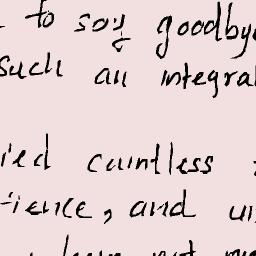 to say goodbye
such an integral
ied countless
ience, and un
have not